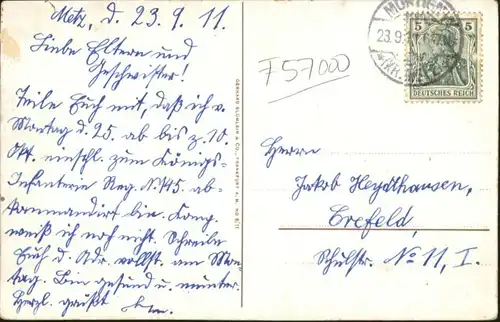 Metz, d. 23.9.11.
Liebe Eltern und
Geschwister!
Teile Euch mit, daß ich v.
Montag d. 25. ab bis z. 10.
Okt. einschl. zum Königs-
Infanterie Reg. No 145. ab-
kommandirt bin. Komp.
weiß ich noch nicht. Schreibe
Euch d. Adr. vollst. am Mon
tag. Bin gesund u. munter.
Herzl. grüßt
F 57000
23.9.
5 5
DEUTSCHES REICH
Herrn
Jakob Heydthausen,
Crefeld,
Schulstr. No 11, I.